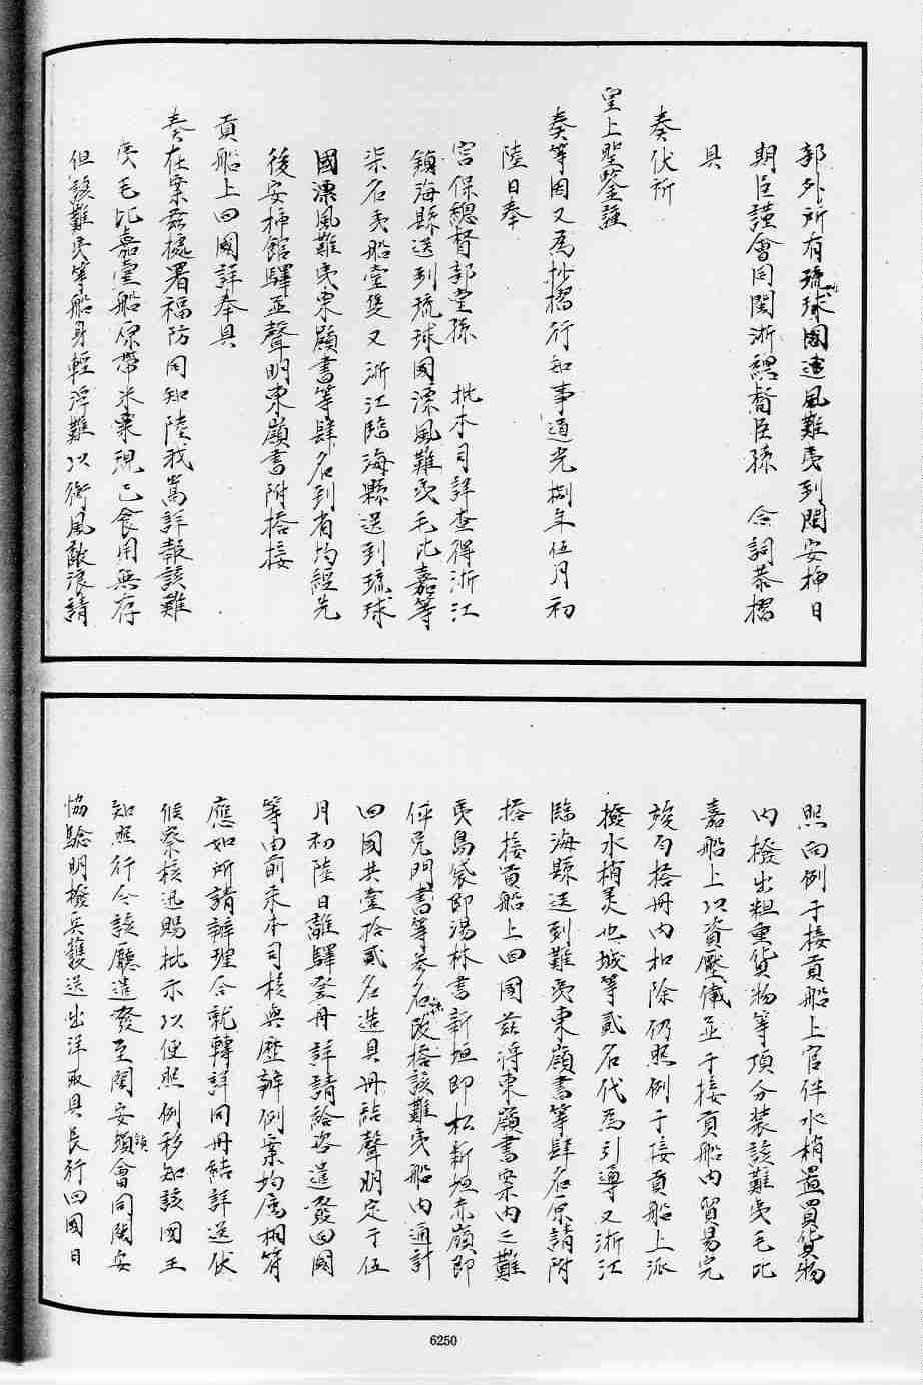 郭外所有琉球國遭風難夷到閩安揷日
期臣謹會同閩浙總督臣孫　合詞恭摺
具
奏伏祈
皇上聖鑒謹
奏等因又爲抄摺行知事道光捌年伍月初
陸日奉
宮保總督部堂孫　批本司詳查得浙江
鎮海縣送到琉球國漂風難夷毛比嘉等
柒名夷船壹隻又浙江臨海縣送到琉球
國漂風難夷東顧書等肆名到省均經先
後安揷館驛並聲明東顧書附搭接
貢船上回國詳奉具
奏在案茲據署福防同知陸我嵩詳報該難
夷毛比嘉壹船原帶米粟現已食用無存
但該難夷等船身輕浮難以衝風敵浪請
照向例于接貢船上官伴水梢置買貨物
內撥出粗重貨物等項分裝該難夷毛比
嘉船上以資壓儎並于接貢船內貿易完
竣另搭冊內扣除仍照例于接貢船上派
撥水梢美也城等貳名代爲引導又浙江
臨海縣送到難夷東顧書等肆名原請附
搭接貢船上回國茲將東顧書案內之難
夷島袋即湯林書新垣即松新垣赤嶺即
仵兒門書等叁名改搭該難夷船內通計
回國共壹拾貳名造具冊結聲明定于伍
月初陸日離驛登舟詳請給咨遣發回國
等由前來本司核與歷辦例案均屬相符
應如所請辦理合就轉詳同冊結詳送伏
候察核迅賜批示以便照例移知該國王
知照行令該廳遣發至閩安鎮會同閩安
協驗明撥兵護送出洋取具長行回國日
6250